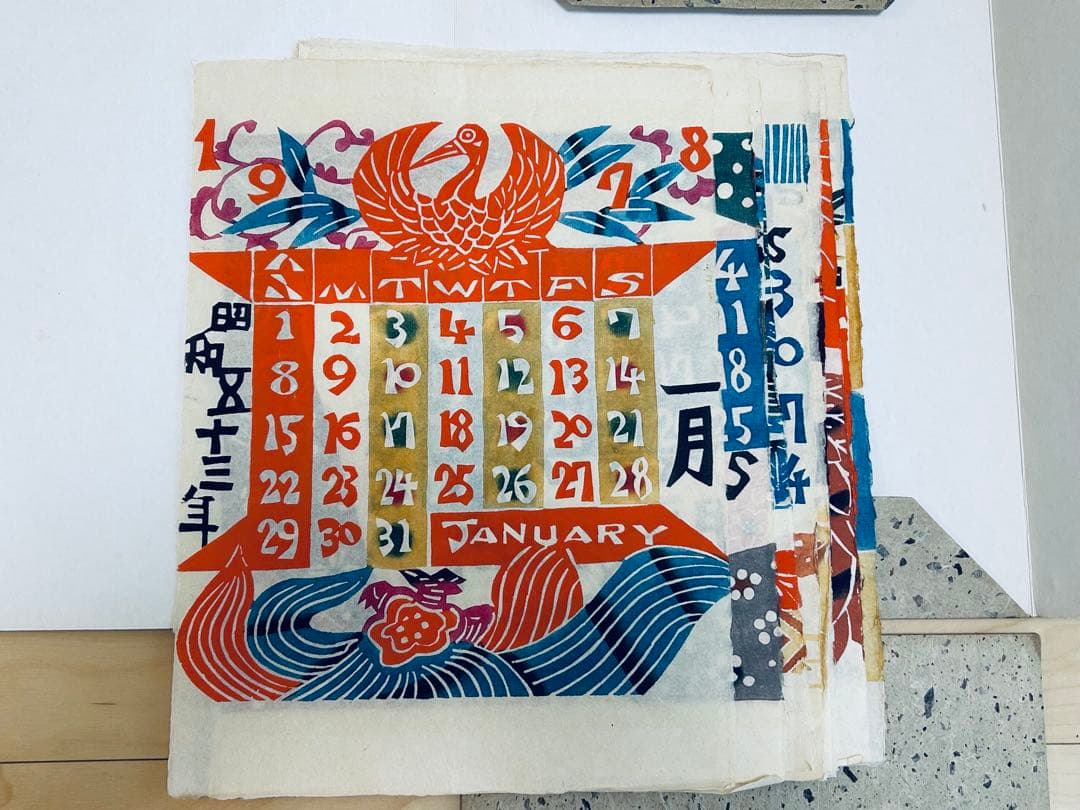 1 9 7 8
M T W T F S
1 2 3 4 5 6 7
8 9 10 11 12 13 14
15 16 17 18 19 20 21
22 23 24 25 26 27 28
29 30 31 JANUARY
昭和五十三年
一月
4
1
8
5
S
S
3
0
7
4